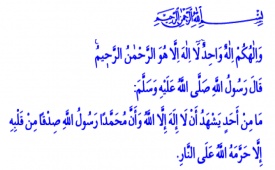 بِسْمِ اللَّهِ الرَّحْمَنِ الرَّحِيمِ
وَإِلَٰهُكُمْ إِلَٰهٌ وَاحِدٌ لَّا إِلَٰهَ إِلَّا هُوَ الرَّحْمَٰنُ الرَّحِيمُ
قَالَ رَسُولُ اللَّهِ صَلَّى اللَّهُ عَلَيْهِ وَسَلَّمَ:
مَا مِنْ أَحَدٍ يَشْهَدُ أَنْ لَا إِلَهَ إِلَّا اللَّهُ وَأَنَّ مُحَمَّدًا رَسُولُ اللَّهِ صِدْقًا مِنْ قَلْبِهِ
إِلَّا حَرَّمَهُ اللَّهُ عَلَى النَّارِ.